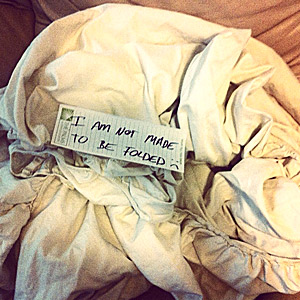 I AM NOT MADE
TO BE FOLDED :)